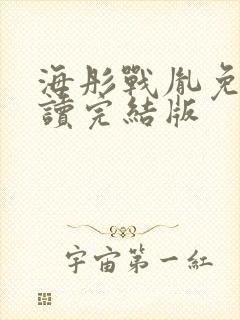 海彤戰胤免
讀完結版
宇宙第一紅